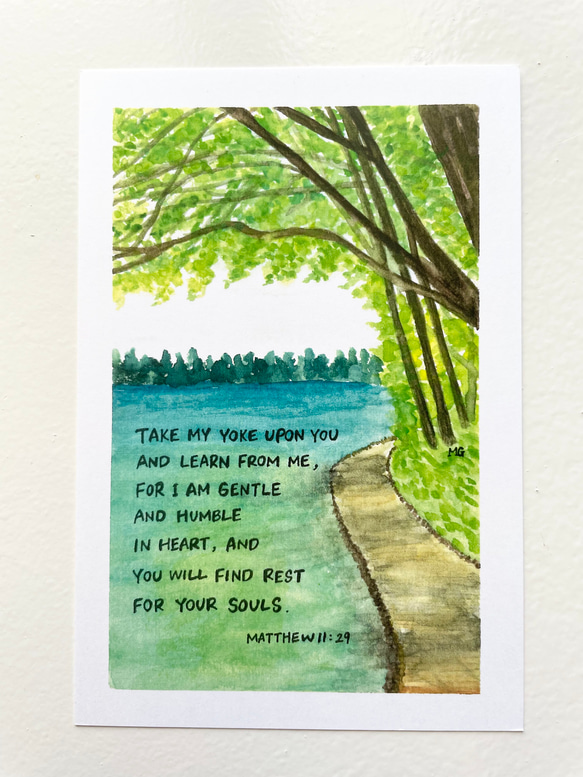 TAKE MY YOKE UPON YOU
AND LEARN FROM ME,
FOR I AM GENTLE
AND HUMBLE
IN HEART, AND
YOU WILL FIND REST
FOR YOUR SOULS.
MATTHEW 11:29
MG